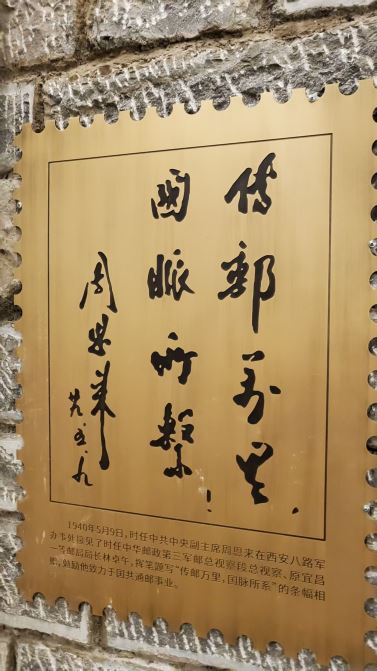 传郵萬里，
國脈所繫！
周恩来
廿九、五、九
1940年5月9日，时任中共中央副主席周恩来在西安八路军
办事处接见了时任中华邮政第三军邮总视察段总视察、原宜昌
一等邮局局长林卓午，挥笔题写“传邮万里，国脉所系”的条幅相
赠，鼓励他致力于国共通邮事业。